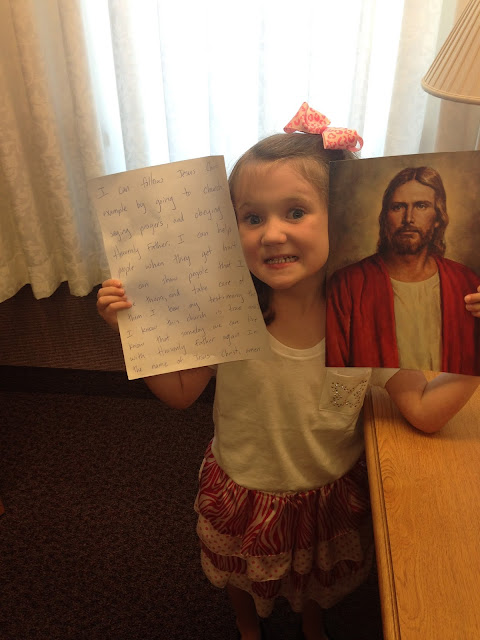 I can follow Jesus
example by going to church
saying prayers and obeying
Heavenly Father. I can help
people when they get hurt
can show people that I
them, and take care of
them I bear my testimony
I know this church is true
know that someday we can live
with Heavenly Father again. In
the name of Jesus Christ amen